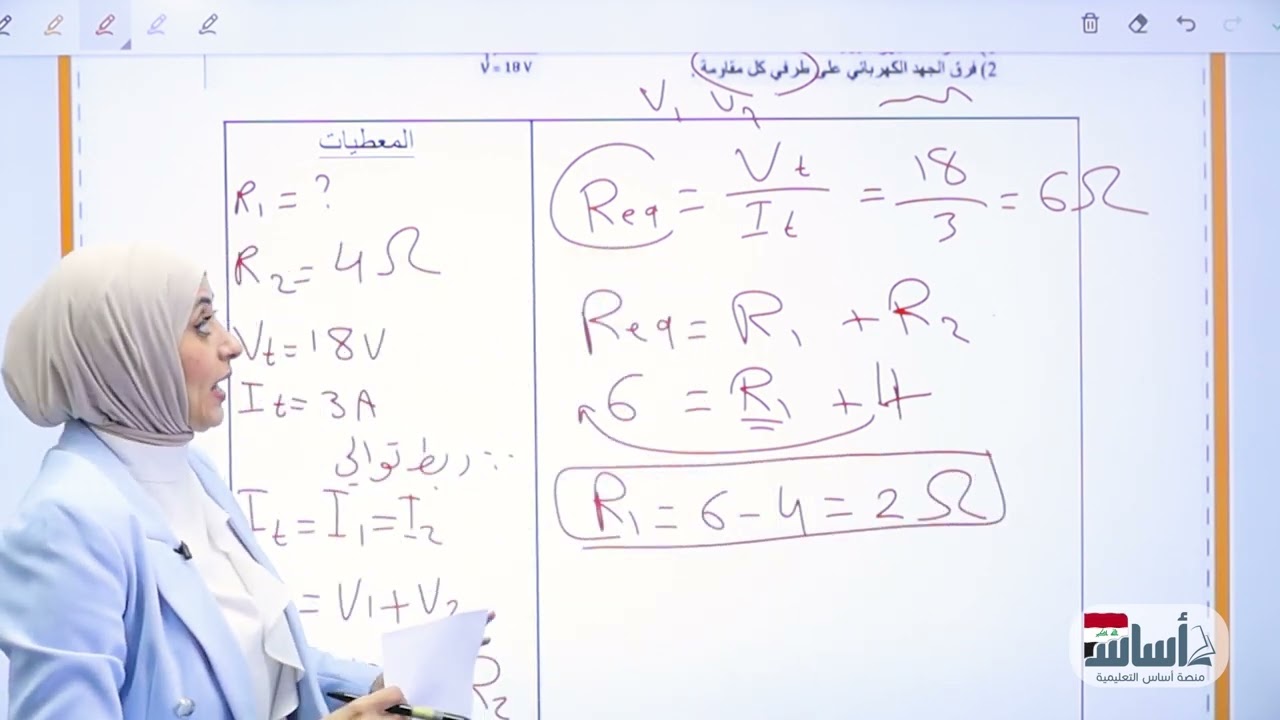 2) فرق الجهد الكهربائي على طرفي كل مقاومة .
V = 18 V
V₁ V₂
المعطيات
R₁ = ?
R₂ = 4 Ω
Vt = 18 V
It = 3 A
∵ ربط توالي
It = I₁ = I₂
= V₁ + V₂
R₂
Req = Vt / It = 18 / 3 = 6 Ω
Req = R₁ + R₂
6 = R₁ + 4
R₁ = 6 - 4 = 2 Ω
أساس
منصة أساس التعليمية